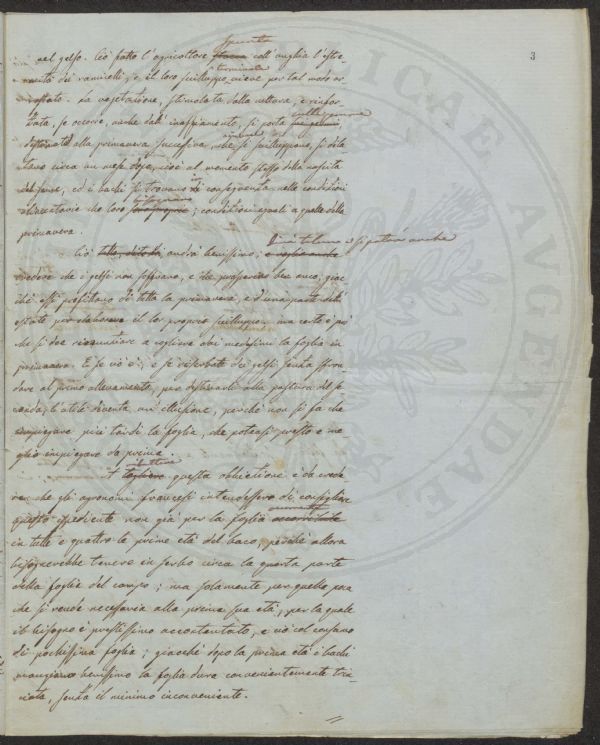 3
spunta
nel gelso. Ciò fatto l'agricoltore coll'unghia l'estre-
terminale
mità dei ramicelli, e il loro sviluppo viene per tal modo ar-
restato. La vegetazione, stimolata dalla coltura, e rinfor-
sulle gemme
zata, se occorre, anche dall'inaffiamento, si porta
destinate alla primavera successiva, che si sviluppano, si
circa un mese dopo, cioè al momento stesso della nascita
ed i bachi si trovano di conseguenza nelle condizioni
bisognano
alimentarie che loro ; condizioni eguali a quelle della
primavera.
si potrà anche
Ciò andrà benissimo;
credere che i gelsi non soffrano, e che prosperino ben anco, giac-
chè essi profittano di tutta la primavera, e d'una parte dell'
estate per elaborare il lor proprio sviluppo; ma certo è poi
che si dee rinunciare a cogliere dai medesimi la foglia in
primavera. E se ciò è; e se dei gelsi senza sfron-
dare al primo allevamento, per destinarli alla pastura del se-
condo, l'utile diventa un'illusione, perchè non si fa che
impiegare più tardi la foglia, che poteasi presto e me-
glio impiegare da prima.
A questa obbiezione è da crede-
re che gli agronomi francesi intendessero di consigliare
questo espediente non già per la foglia
in tutte e quattro le prime età del baco, perchè allora
bisognerebbe tenere in serbo circa la quarta parte
della foglia del campo; ma solamente per quella poca
che si rende necessaria alla prima sua età, per la quale
il bisogno è prestissimo accontentato, e ciò col consumo
di pochissima foglia; giacchè dopo la prima età i bachi
mangiano benissimo la foglia dura convenientemente trin-
ciata, senza il minimo inconveniente.